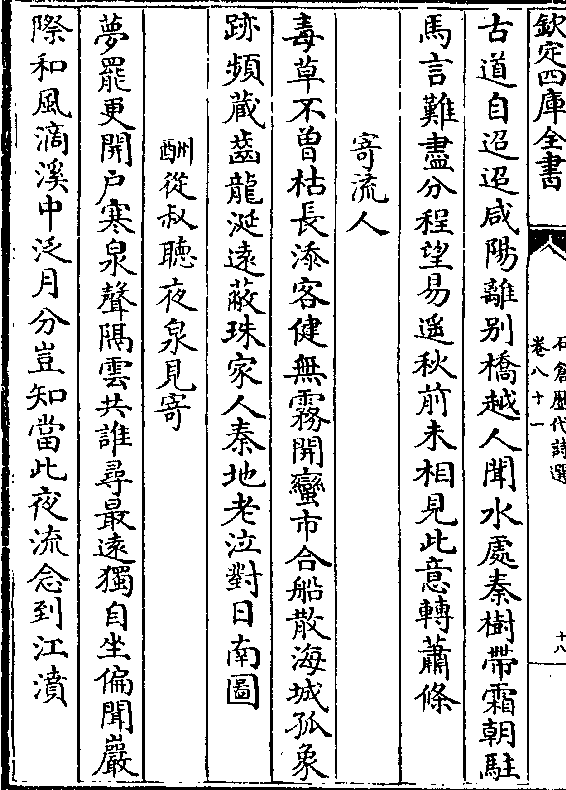 欽定四庫全書
石倉歷代詩選
卷八十一
十八
古道自迢迢咸陽離别橋越人聞水處秦樹帶霜朝駐
馬言難盡分程望易遥秋前未相見此意轉蕭條
寄流人
毒草不曽枯長添客健無霧開蠻市合船散海城孤象
跡頻藏齒龍涎遠蔽珠家人秦地老泣對日南圖
酬從叔聽夜泉見寄
夢罷更開戸寒泉聲隔雲共誰尋最遠獨自坐偏聞巖
際和風滴溪中泛月分豈知當此夜流念到江濆